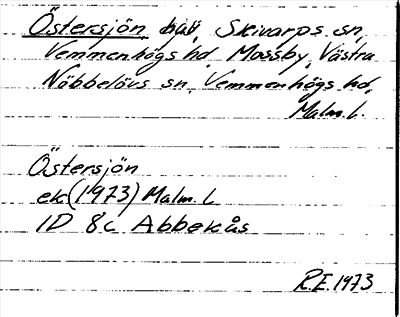 Östersjön, hav, Skivarps sn,
Vemmenhögs hd, Mossby, Västra
Nöbbelövs sn, Vemmenhögs hd,
Malm. L.
Östersjön
ek (1973) Malm. L
1D 8c Abbekås
R.E. 1973